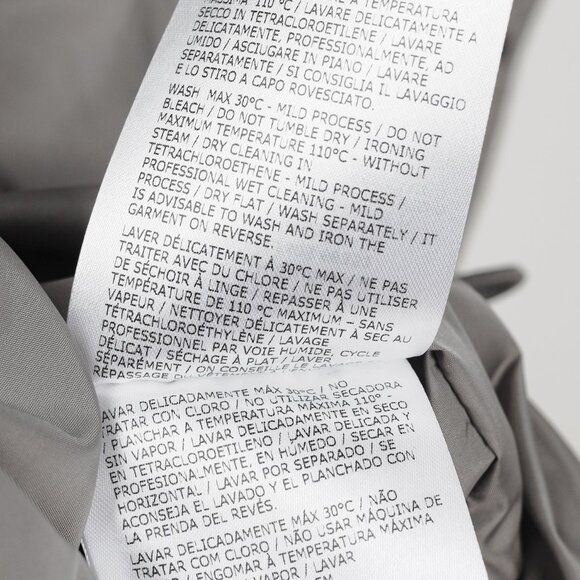 A TEMPERATURA
MASSIMA 110 °C / LAVARE DELICATAMENTE A
SECCO IN TETRACLOROETILENE / LAVARE
DELICATAMENTE, PROFESSIONALMENTE, AD
UMIDO / ASCIUGARE IN PIANO / LAVARE
SEPARATAMENTE / SI CONSIGLIA IL LAVAGGIO
E LO STIRO A CAPO ROVESCIATO.
WASH MAX 30°C - MILD PROCESS / DO NOT
BLEACH / DO NOT TUMBLE DRY / IRONING
MAXIMUM TEMPERATURE 110°C - WITHOUT
STEAM / DRY CLEANING IN
TETRACHLOROETHENE - MILD PROCESS /
PROFESSIONAL WET CLEANING - MILD
PROCESS / DRY FLAT / WASH SEPARATELY / IT
IS ADVISABLE TO WASH AND IRON THE
GARMENT ON REVERSE.
LAVER DÉLICATEMENT À 30°C MAX / NE PAS
TRAITER AVEC DU CHLORE / NE PAS UTILISER
DE SÉCHOIR À LINGE / REPASSER À UNE
TEMPÉRATURE DE 110 °C MAXIMUM – SANS
VAPEUR / NETTOYER DÉLICATEMENT À SEC AU
TÉTRACHLOROÉTHYLÈNE / LAVAGE
PROFESSIONNEL PAR VOIE HUMIDE, CYCLE
DÉLICAT / SÉCHAGE À PLAT / LAVER
SÉPARÉMENT / ON CONSEILLE LE LAVAGE
RÉPASSAGE
LAVAR DELICADAMENTE MÁX 30°C / NO
TRATAR CON CLORO / NO UTILIZAR SECADORA
/ PLANCHAR A TEMPERATURA MÁXIMA 110° -
SIN VAPOR / LAVAR DELICADAMENTE EN SECO
EN TETRACLOROETILENO / LAVAR DELICADA Y
PROFESIONALMENTE, EN HÚMEDO / SECAR EN
HORIZONTAL / LAVAR POR SEPARADO / SE
ACONSEJA EL LAVADO Y EL PLANCHADO CON
LA PRENDA DEL REVÉS.
LAVAR DELICADAMENTE MÁX 30°C / NÃO
TRATAR COM CLORO / NÃO USAR MÁQUINA DE
/ ENGOMAR À TEMPERATURA MÁXIMA
VAPOR / LAVAR
EM